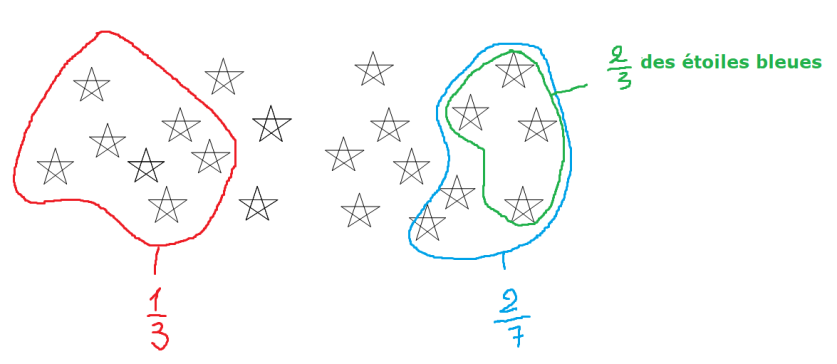 2/3 des étoiles bleues
1/3
2/7